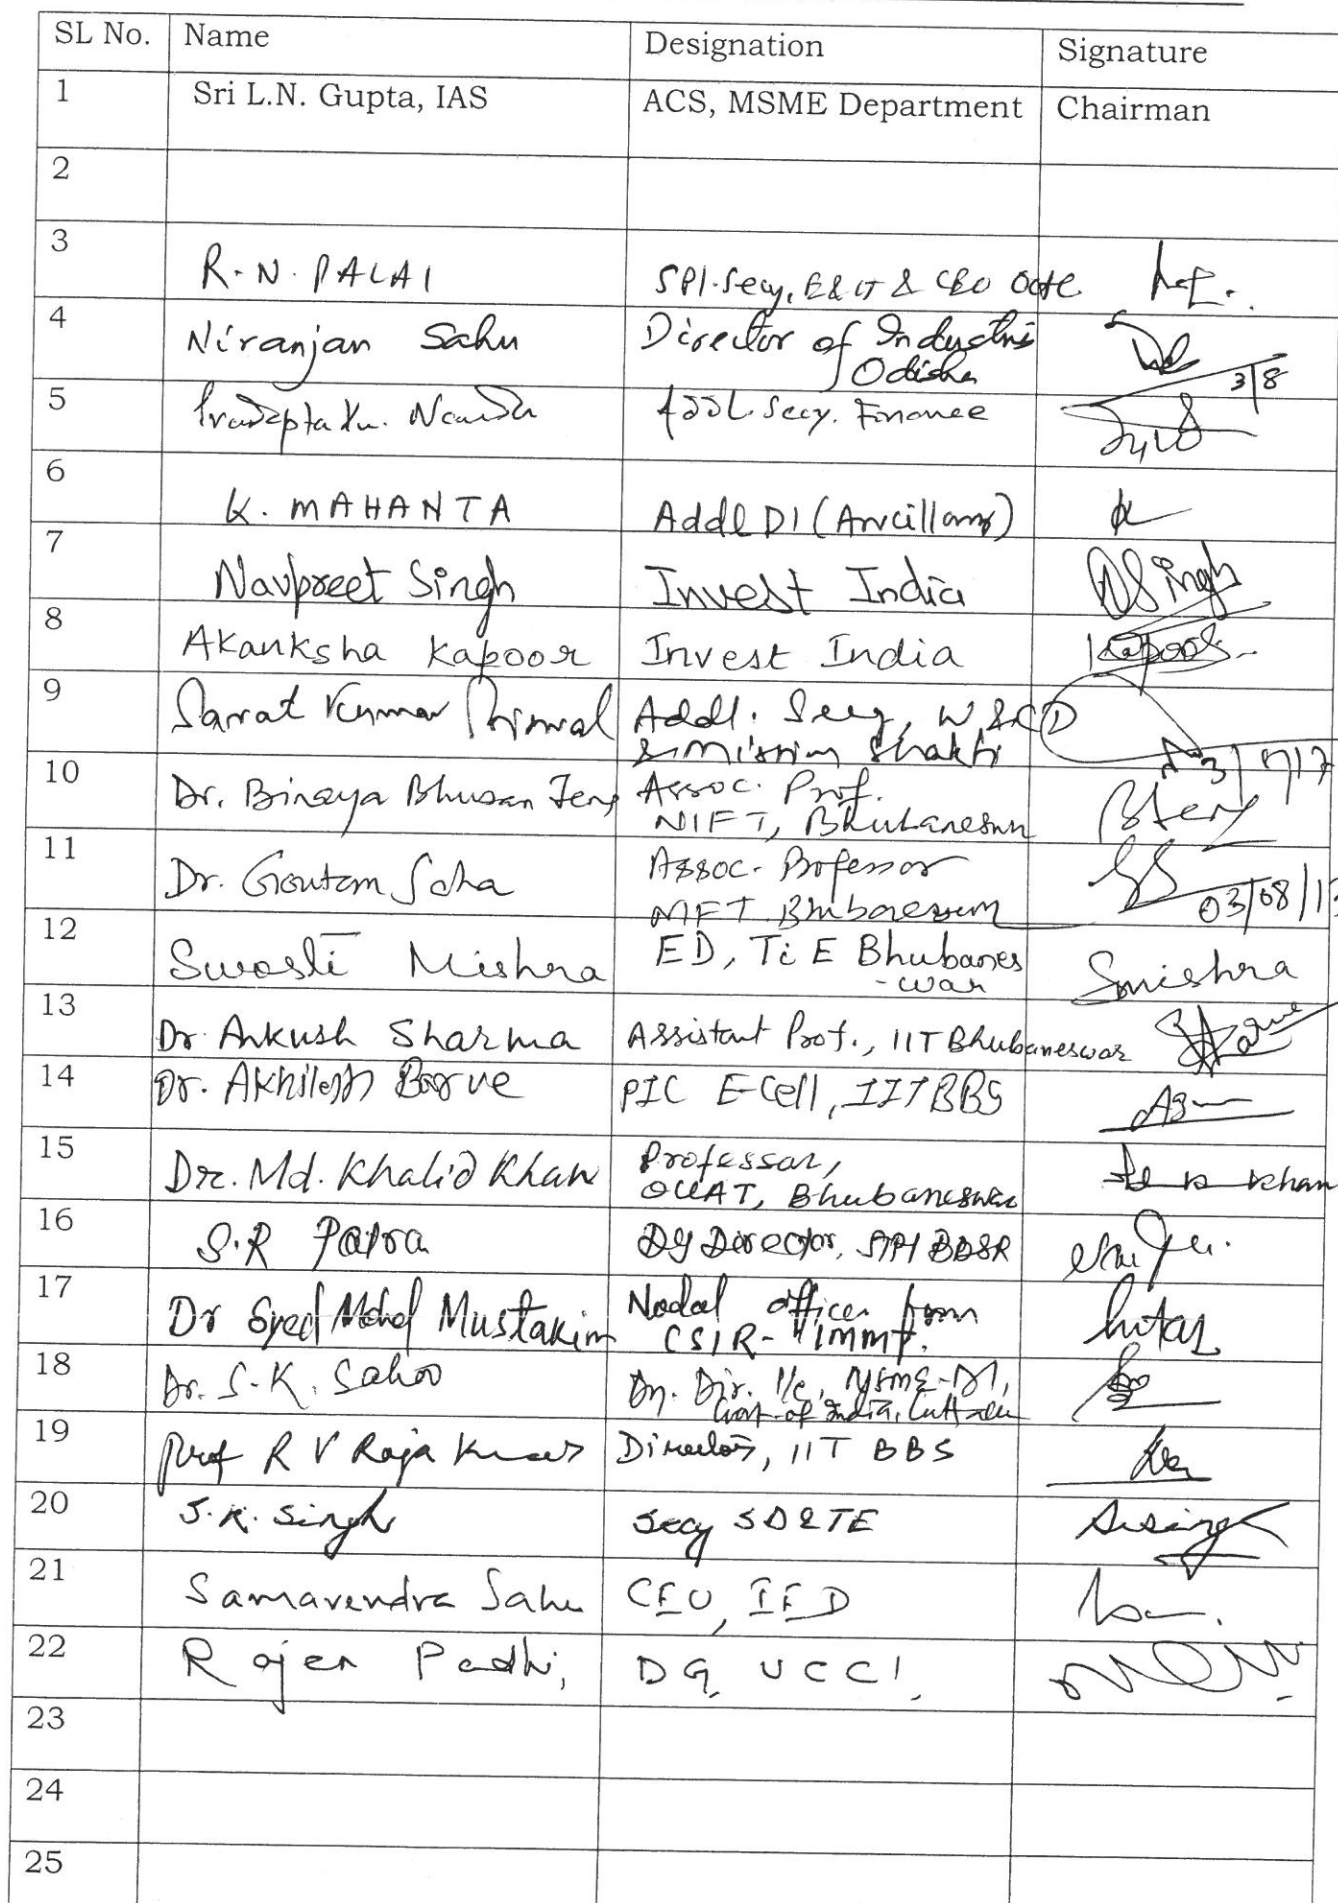 SL No. Name Designation Signature
1 Sri L.N. Gupta, IAS ACS, MSME Department Chairman
2
3 R.N. PALAI Spl. Secy, E&IT & CEO
4 Niranjan Sahu Director of Industries
Odisha
3/8
5 Nanda Addl. Secy. Finance
6 K. MAHANTA Addl DI (Ancillary)
7 Navpreet Singh Invest India NSingh
8 Akanksha Kapoor Invest India Kapoor
9 Sarat Kumar Addl. Secy, W&CD
& Mission Shakti
10 Dr. Binaya Bhusan Jena Assoc. Prof.
NIFT, Bhubaneswar BJena
11 Dr. Goutam Saha Assoc. Professor
NIFT Bhubaneswar 03/08/17
12 Swosti Mishra ED, TiE Bhubanes
-war Smishra
13 Dr Ankush Sharma Assistant Prof., IIT Bhubaneswar
14 Dr. Akhilesh Barve PIC E-Cell, IIT BBS
15 Dr. Md. Khalid Khan Professor,
OUAT, Bhubaneswar Khan
16 S.R Patra Dy Director, BBSR
17 Dr Syed Mohd Mustakim Nodal officer from
CSIR-IMMT.
18 Dr. S.K. Sahoo Dy. Dir. I/c, MSME-DI,
Govt. of India, Cuttack
19 Prof R V Raja Kumar Director, IIT BBS
20 S.K. Singh Secy SD&TE
21 Samavendra Sahu CEO, IED
22 Rajen Padhi, DG, UCCI,
23
24
25